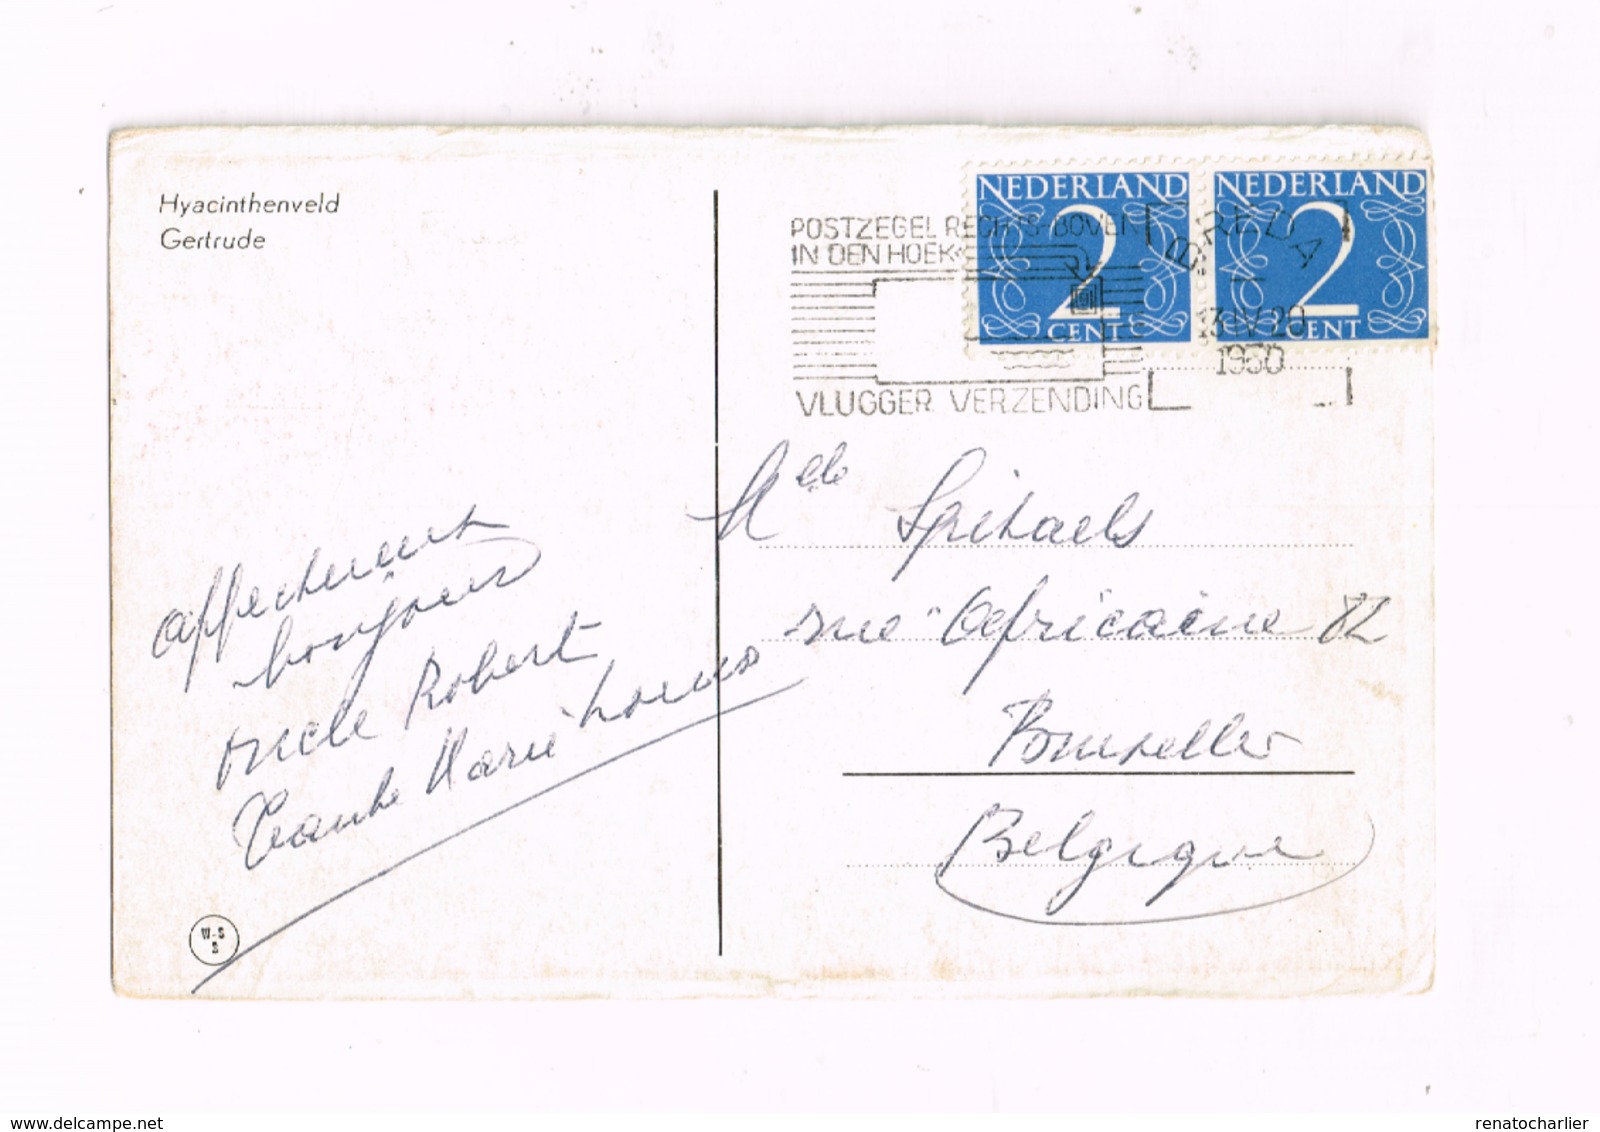 Hyacinthenveld
Gertrude
NEDERLAND
2
CENT
NEDERLAND
2
CENT
POSTZEGEL RECHTS-BOVEN
IN DEN HOEK
VLUGGER VERZENDING
BREDA
13 IV 20
1950
Melle Spitaels
rue Africaine 82
Bruxelles
Belgique
affectueux
bonjour
oncle Robert
Tante Marie
W-S
S
delcampe.net
renatocharlier